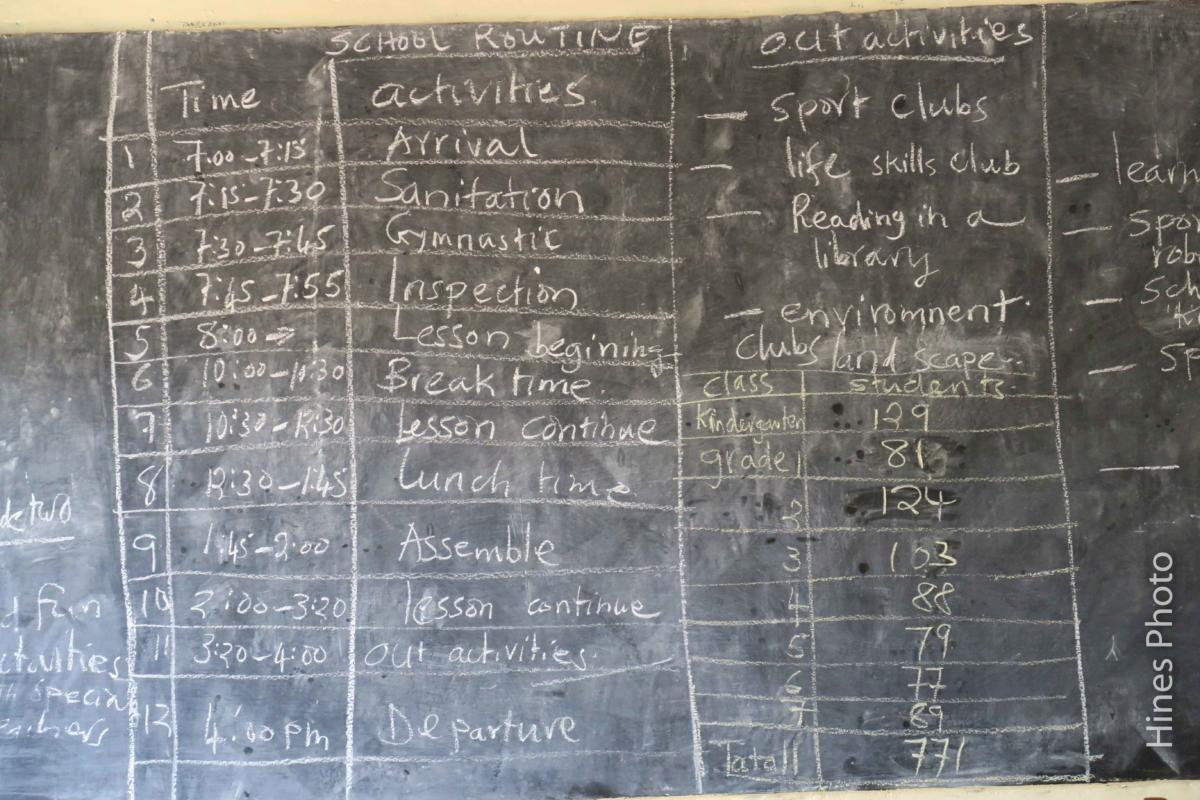 SCHOOL ROUTINE
Time activities
1 7:00-7:15 Arrival
2 7:15-7:30 Sanitation
3 7:30-7:45 Gymnastic
4 7:45-7:55 Inspection
5 8:00 Lesson begining
6 10:00-10:30 Break time
7 10:30-12:30 Lesson continue
8 12:30-1:45 Lunch time
9 1:45-2:00 Assemble
10 2:00-3:20 lesson continue
11 3:20-4:00 out activities
4:00 pm Departure
out activities
— Sport clubs
— life skills club
— Reading in a
library
— enviromnent
clubs land scape
class students
kindergarten 129
grade 1 81
2 124
3 103
4 88
5 79
6 77
7 89
Tatall 771
— learn
— Spor
rob
— Sch
— Sp
two
d fun
ctivities
special
Hines Photo